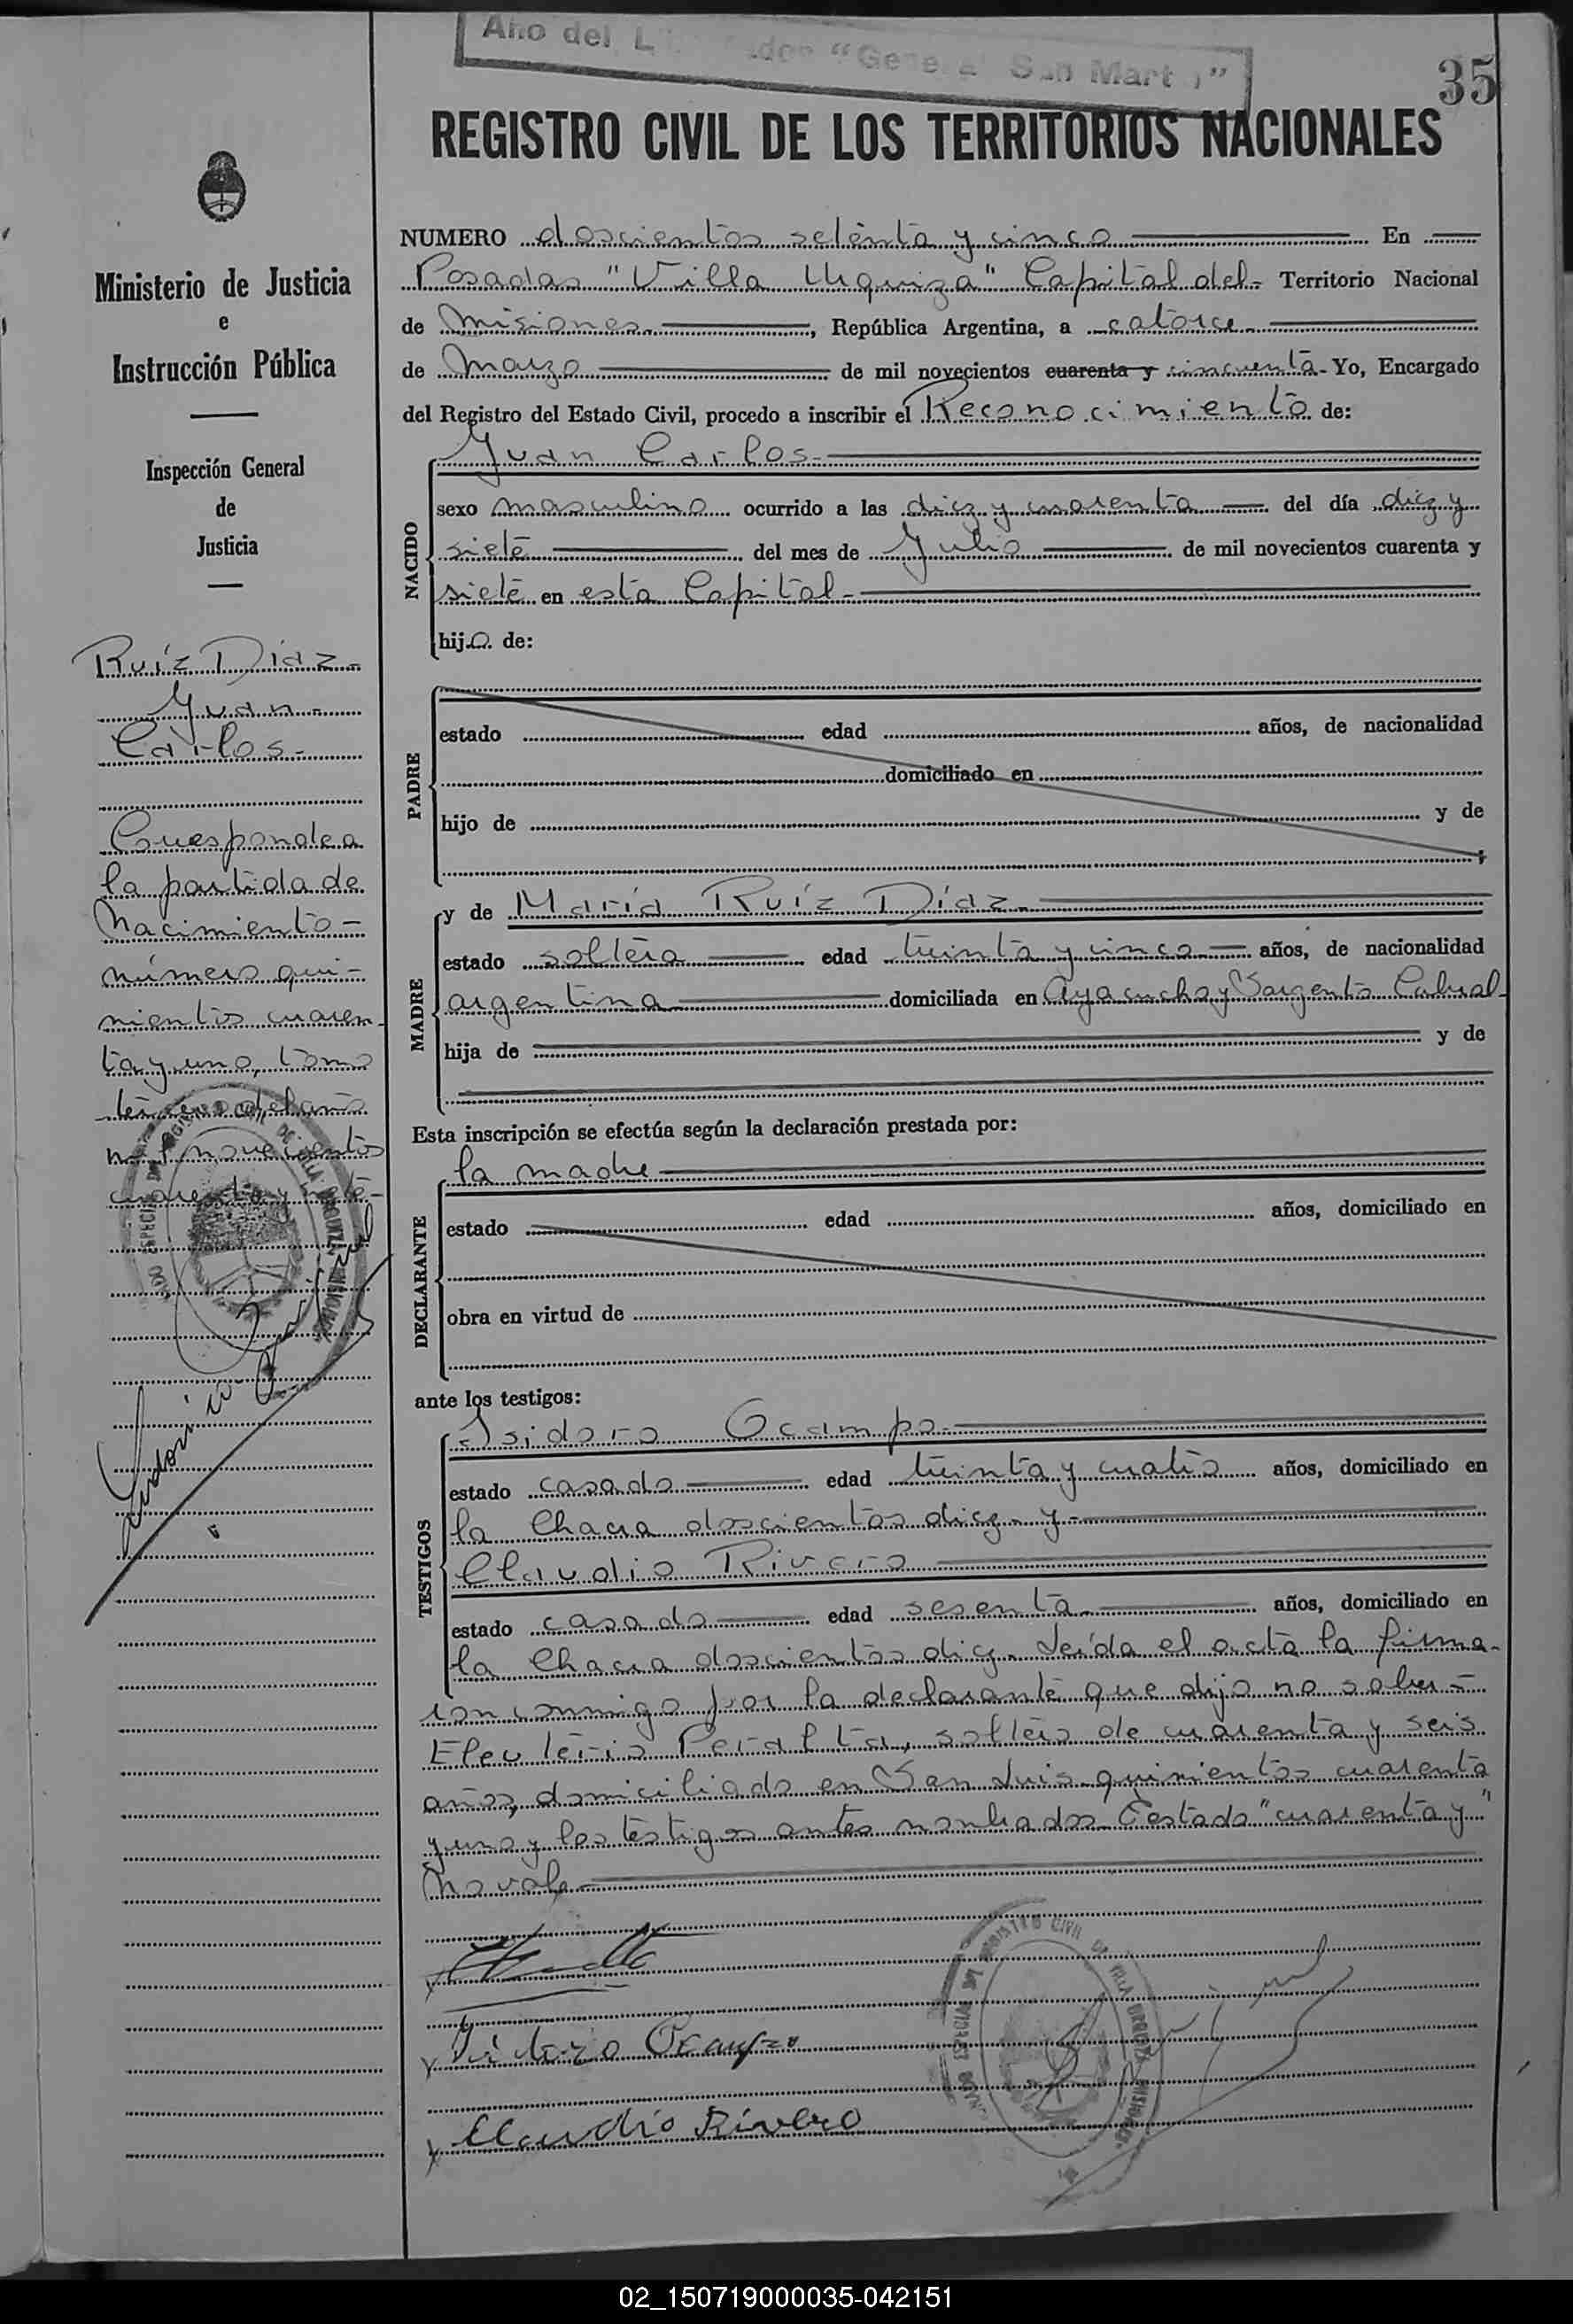 Año del L dor "General San Martín"
35
REGISTRO CIVIL DE LOS TERRITORIOS NACIONALES
NUMERO doscientos setenta y cinco En
Posadas "Villa Urquiza" Capital del Territorio Nacional
de Misiones, República Argentina, a catorce
de Marzo de mil novecientos cuarenta y cincuenta Yo, Encargado
del Registro del Estado Civil, procedo a inscribir el Reconocimiento de:
NACIDO
Juan Carlos
sexo masculino ocurrido a las diez y cuarenta del día diez y
siete del mes de Julio de mil novecientos cuarenta y
siete en esta Capital
hijo de:
PADRE
estado edad años, de nacionalidad
domiciliado en
hijo de y de
MADRE
y de María Ruíz Díaz
estado soltera edad treinta y cinco años, de nacionalidad
argentina domiciliada en Ayacucho y Sargento Cabral
hija de y de
Esta inscripción se efectúa según la declaración prestada por:
DECLARANTE
la madre
estado edad años, domiciliado en
obra en virtud de
ante los testigos:
TESTIGOS
Isidoro Ocampo
estado casado edad treinta y cuatro años, domiciliado en
la Chacra doscientos diez y
Claudio Rivero
estado casado edad sesenta años, domiciliado en
la Chacra doscientos diez. Leída el acta la firma-
ron conmigo por la declarante que dijo no saber
Eleuterio Peralta, soltero de cuarenta y seis
años, domiciliado en San Luis quinientos cuarenta
y uno y los testigos antes nombrados. Testado "cuarenta y"
No vale
Isidoro Ocampo
Claudio Rivero
Ministerio de Justicia
e
Instrucción Pública
Inspección General
de
Justicia
Ruíz Díaz
Juan
Carlos
Corresponde a
la partida de
Nacimiento
número qui-
nientos cuaren-
ta y uno, tomo
tercero del año
mil novecientos
cuarenta y siete
REGISTRO CIVIL DE VILLA URQUIZA MISIONES
REGISTRO CIVIL DE VILLA URQUIZA MISIONES
02_150719000035-042151